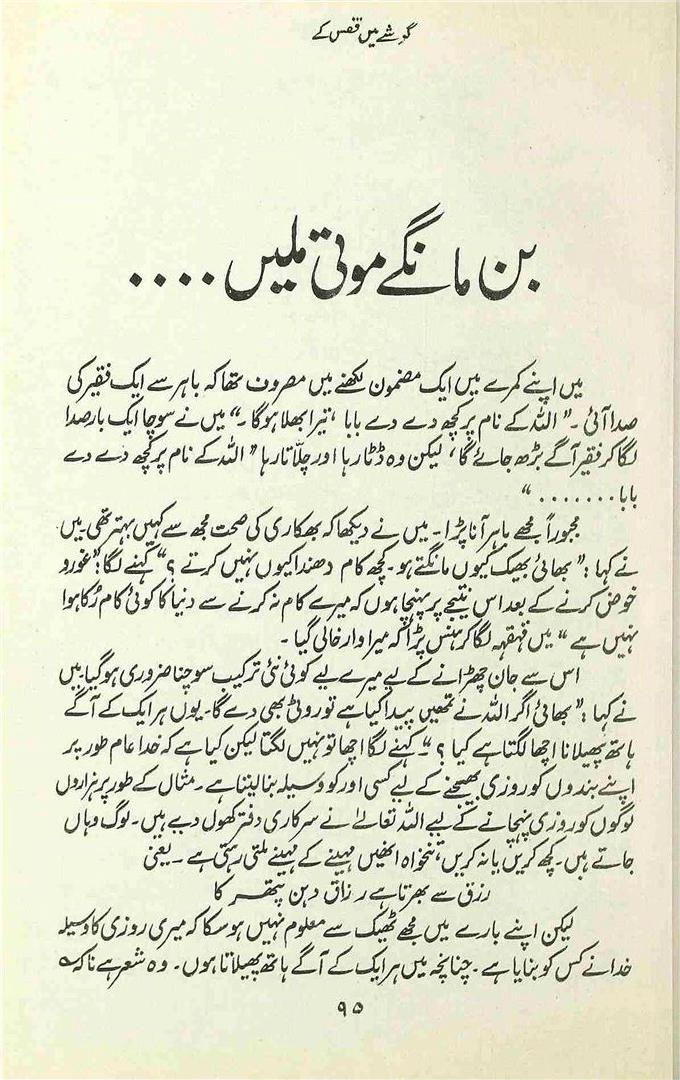 گوشے میں قفس کے
بن مانگے موتی ملیں ....
میں اپنے کمرے میں ایک مضمون لکھنے میں مصروف تھا کہ باہر سے ایک فقیر کی
صدا آئی ۔ " اللہ کے نام پر کچھ دے دے بابا ، تیرا بھلا ہوگا ۔ " میں نے سوچا ایک بار صدا
لگا کر فقیر آگے بڑھ جائے گا ، لیکن وہ ڈٹا رہا اور چلّاتا رہا " اللہ کے نام پر کچھ دے دے
بابا ....... "
مجبوراً مجھے باہر آنا پڑا ۔ میں نے دیکھا کہ بھکاری کی صحت مجھ سے کہیں بہتر تھی ۔ میں
نے کہا : " بھائی بھیک کیوں مانگتے ہو ۔ کچھ کام دھندا کیوں نہیں کرتے ؟ " کہنے لگا : " غور و
خوض کرنے کے بعد اس نتیجے پر پہنچا ہوں کہ میرے کام نہ کرنے سے دنیا کا کوئی کام رُکا ہوا
نہیں ہے " میں قہقہہ لگا کر ہنس پڑا کہ میرا وار خالی گیا ۔
اس سے جان چھڑانے کے لیے میرے لیے کوئی نئی ترکیب سوچنا ضروری ہو گیا ۔ میں
نے کہا : " بھائی اگر اللہ نے تمھیں پیدا کیا ہے تو روٹی بھی دے گا ۔ یوں ہر ایک کے آگے
ہاتھ پھیلانا اچھا لگتا ہے کیا ؟ " ۔ کہنے لگا اچھا تو نہیں لگتا لیکن کیا ہے کہ خدا عام طور پر
اپنے بندوں کو روزی بھیجنے کے لیے کسی اور کو وسیلہ بنا لیتا ہے ۔ مثال کے طور پر ہزاروں
لوگوں کو روزی پہنچانے کے لیے اللہ تعالےٰ نے سرکاری دفتر کھول دیے ہیں ۔ لوگ وہاں
جاتے ہیں ۔ کچھ کریں یا نہ کریں ، تنخواہ انھیں مہینے کے مہینے ملتی رہتی ہے ۔ یعنی
رزق سے بھرتا ہے رزاق دہن پتھر کا
لیکن اپنے بارے میں مجھے ٹھیک سے معلوم نہیں ہو سکا کہ میری روزی کا وسیلہ
خدا نے کس کو بنایا ہے ۔ چنانچہ میں ہر ایک کے آگے ہاتھ پھیلاتا ہوں ۔ وہ شعر ہے نا کہ ؎
۹۵